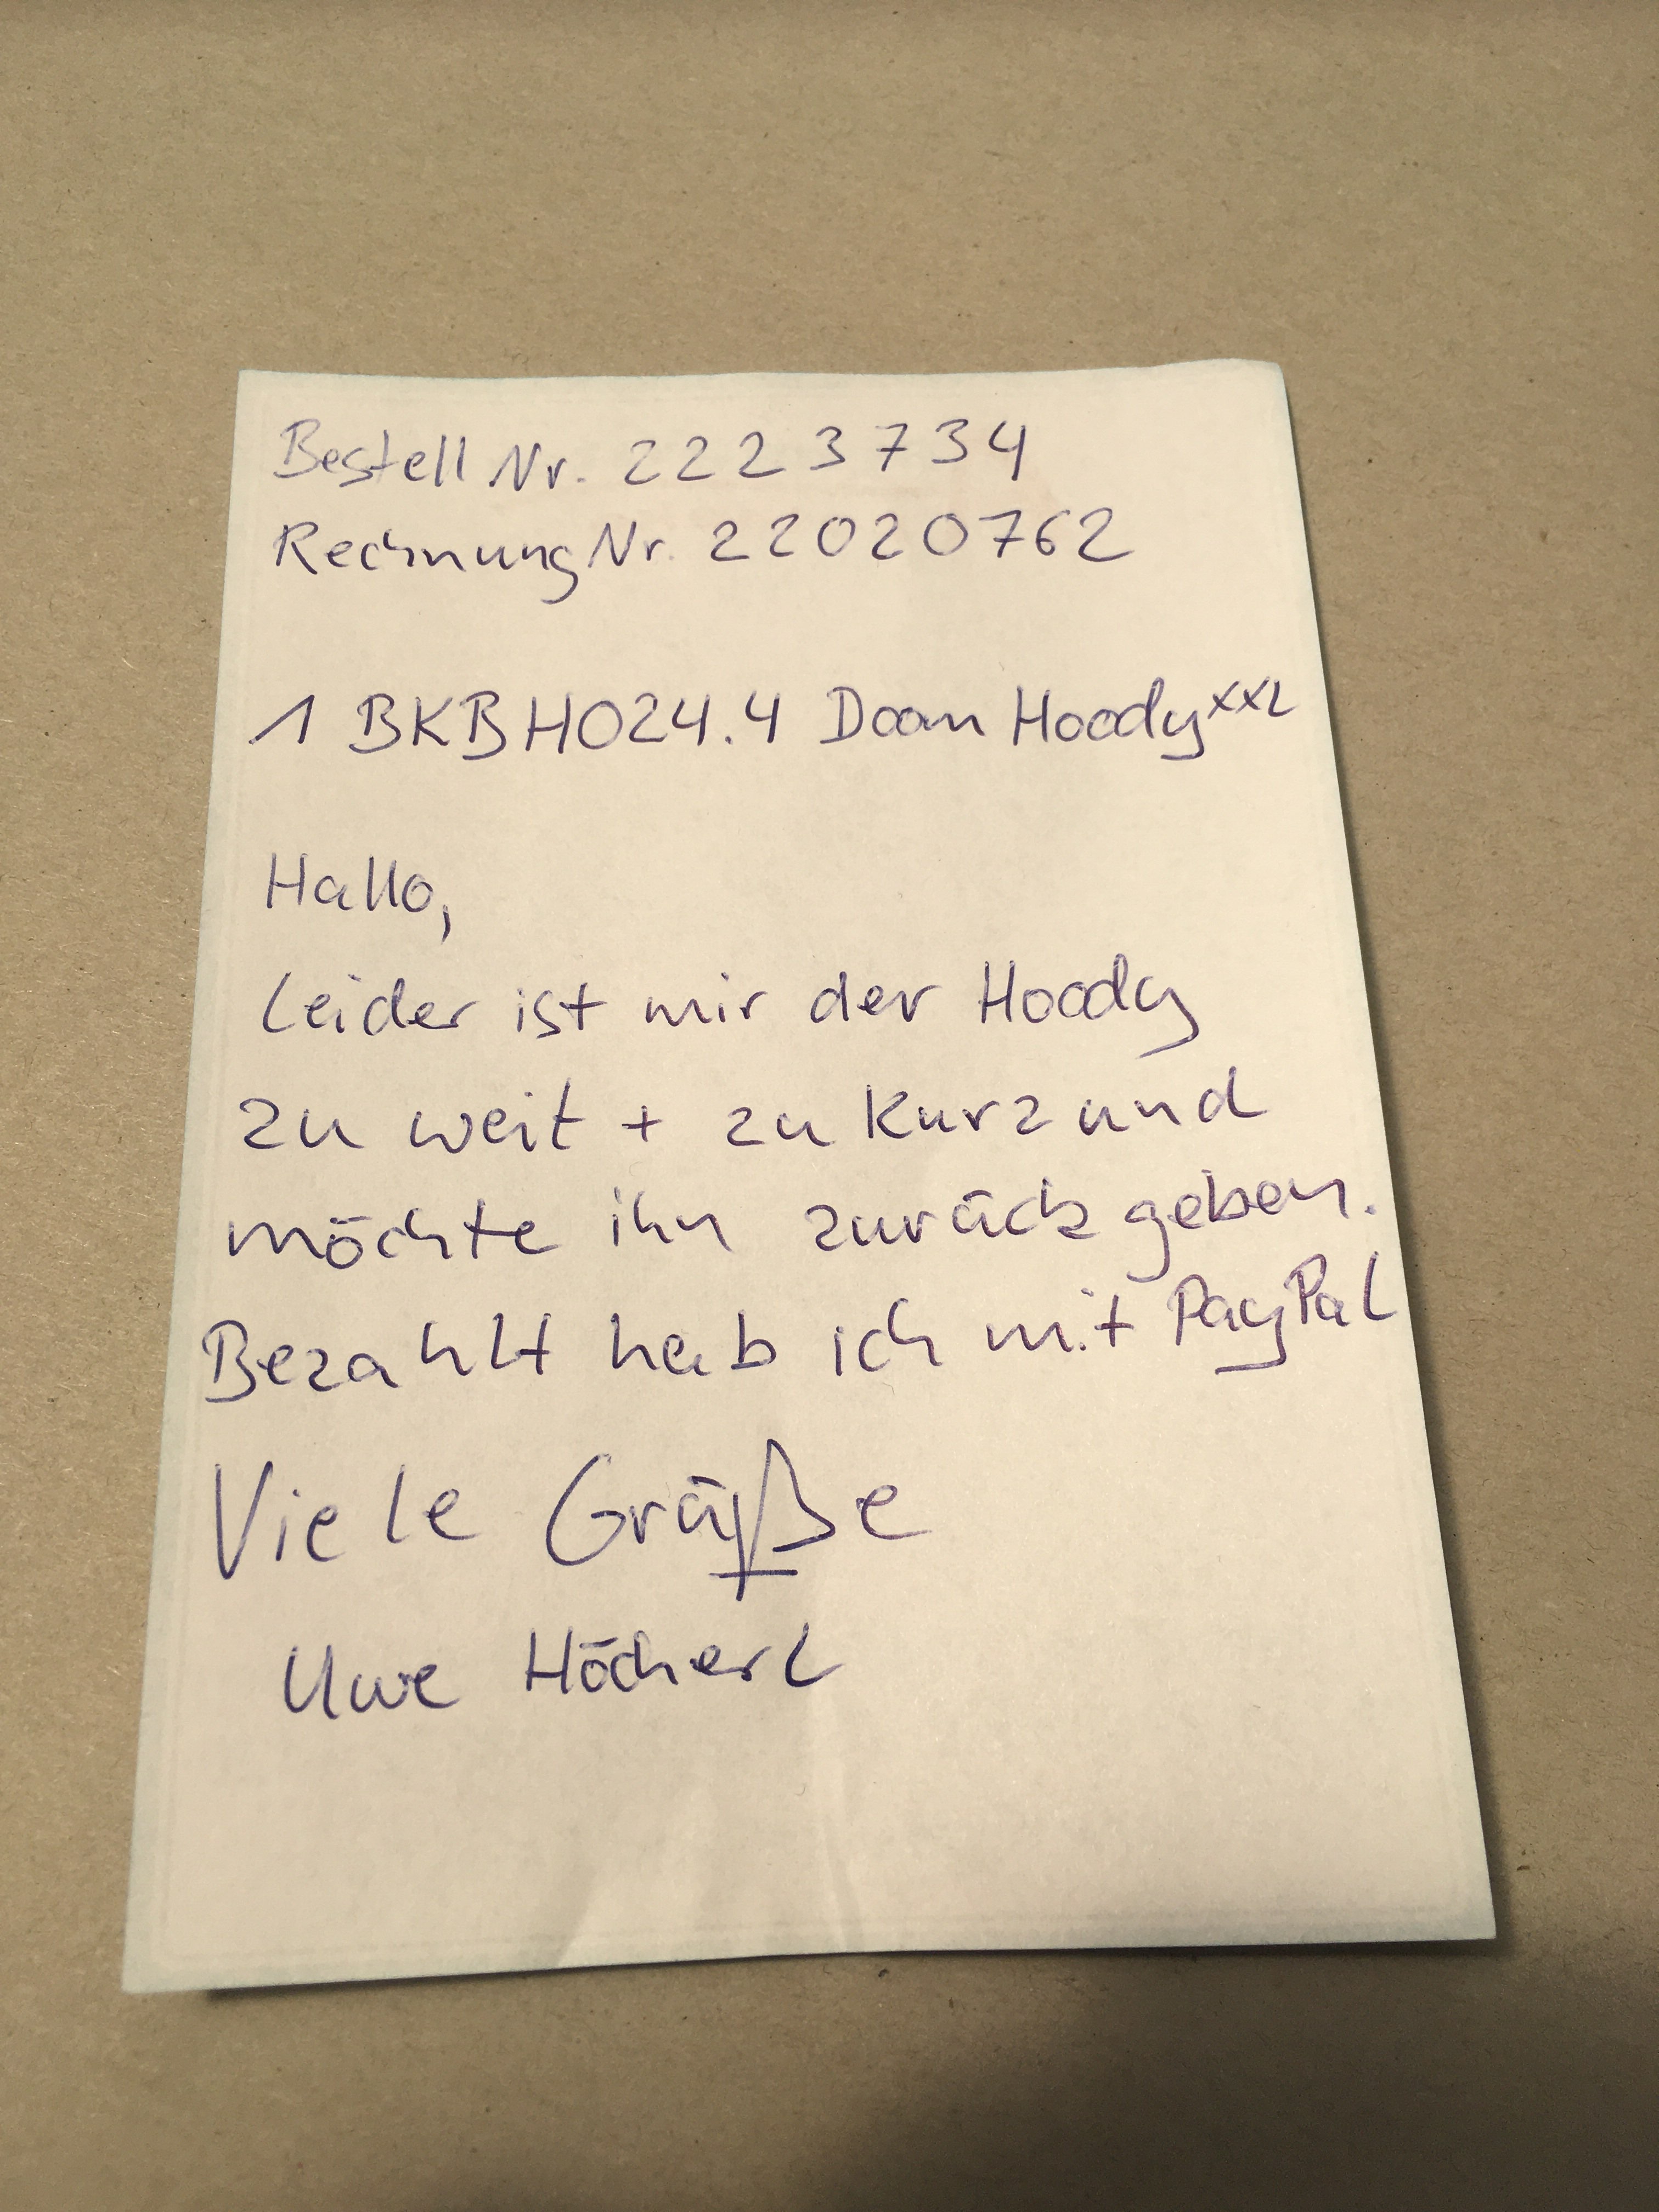 Bestell Nr. 2223734
Rechnung Nr. 22020762
1 BKBHO24.4 Doom Hoody XXL
Hallo,
Leider ist mir der Hoody
zu weit + zu kurz und
möchte ihn zurück geben.
Bezahlt hab ich mit PayPal
Viele Grüße
Uwe Höcherl